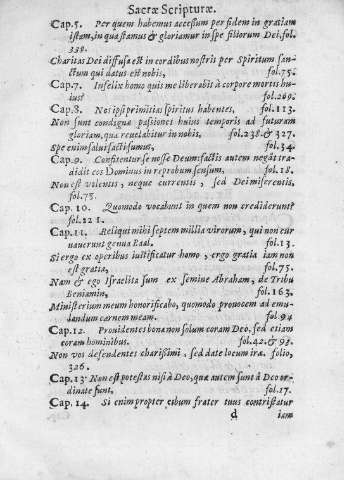 Sacræ Scripturæ.
Cap. 5. Per quem habemus accessum per fidem in gratiam
istam, in qua stamus & gloriamur in spe filiorum Dei. fol.
338.
Charitas Dei diffusa est in cordibus nostris per Spiritum san-
ctum qui datus est nobis, fol. 75.
Cap. 7. Infelix homo quis me liberabit à corpore mortis hu-
ius? fol. 209.
Cap. 8. Nos ipsi primitias spiritus habentes, fol. 113.
Non sunt condignæ passiones huius temporis ad futuram
gloriam, quæ reuelabitur in nobis, fol. 238. & 327.
Spe enim salui facti sumus, fol. 34.
Cap. 9. Confitentur se nosse Deum: factis autem negãt tra-
didit eos Dominus in reprobum sensum, fol. 18.
Non est volentis, neque currentis, sed Dei miserentis,
fol. 75.
Cap. 10. Quomodo vocabunt in quem non crediderunt?
fol. 121.
Cap. 11. Reliqui mihi septem millia virorum, qui non cur
uauerunt genua Baal. fol. 13.
Si ergo ex operibus iustificatur homo, ergo gratia iam non
est gratia, fol. 75.
Nam & ego Israelita sum ex semine Abraham, de Tribu
Beniamin, fol. 163.
Ministerium meum honorificabo, quomodo prouocem ad emu-
landum carnem meam. fol 94
Cap. 12. Prouidentes bona non solum coram Deo, sed etiam
coram hominibus. fol. 42. & 93.
Non vos defendentes charissimi, sed date locum iræ. folio,
326.
Cap. 13. Non est potestas nisi à Deo, quæ autem sunt à Deo or-
dinatæ sunt, fol. 17.
Cap. 14. Si enim propter cibum frater tuus contristatur
d iam